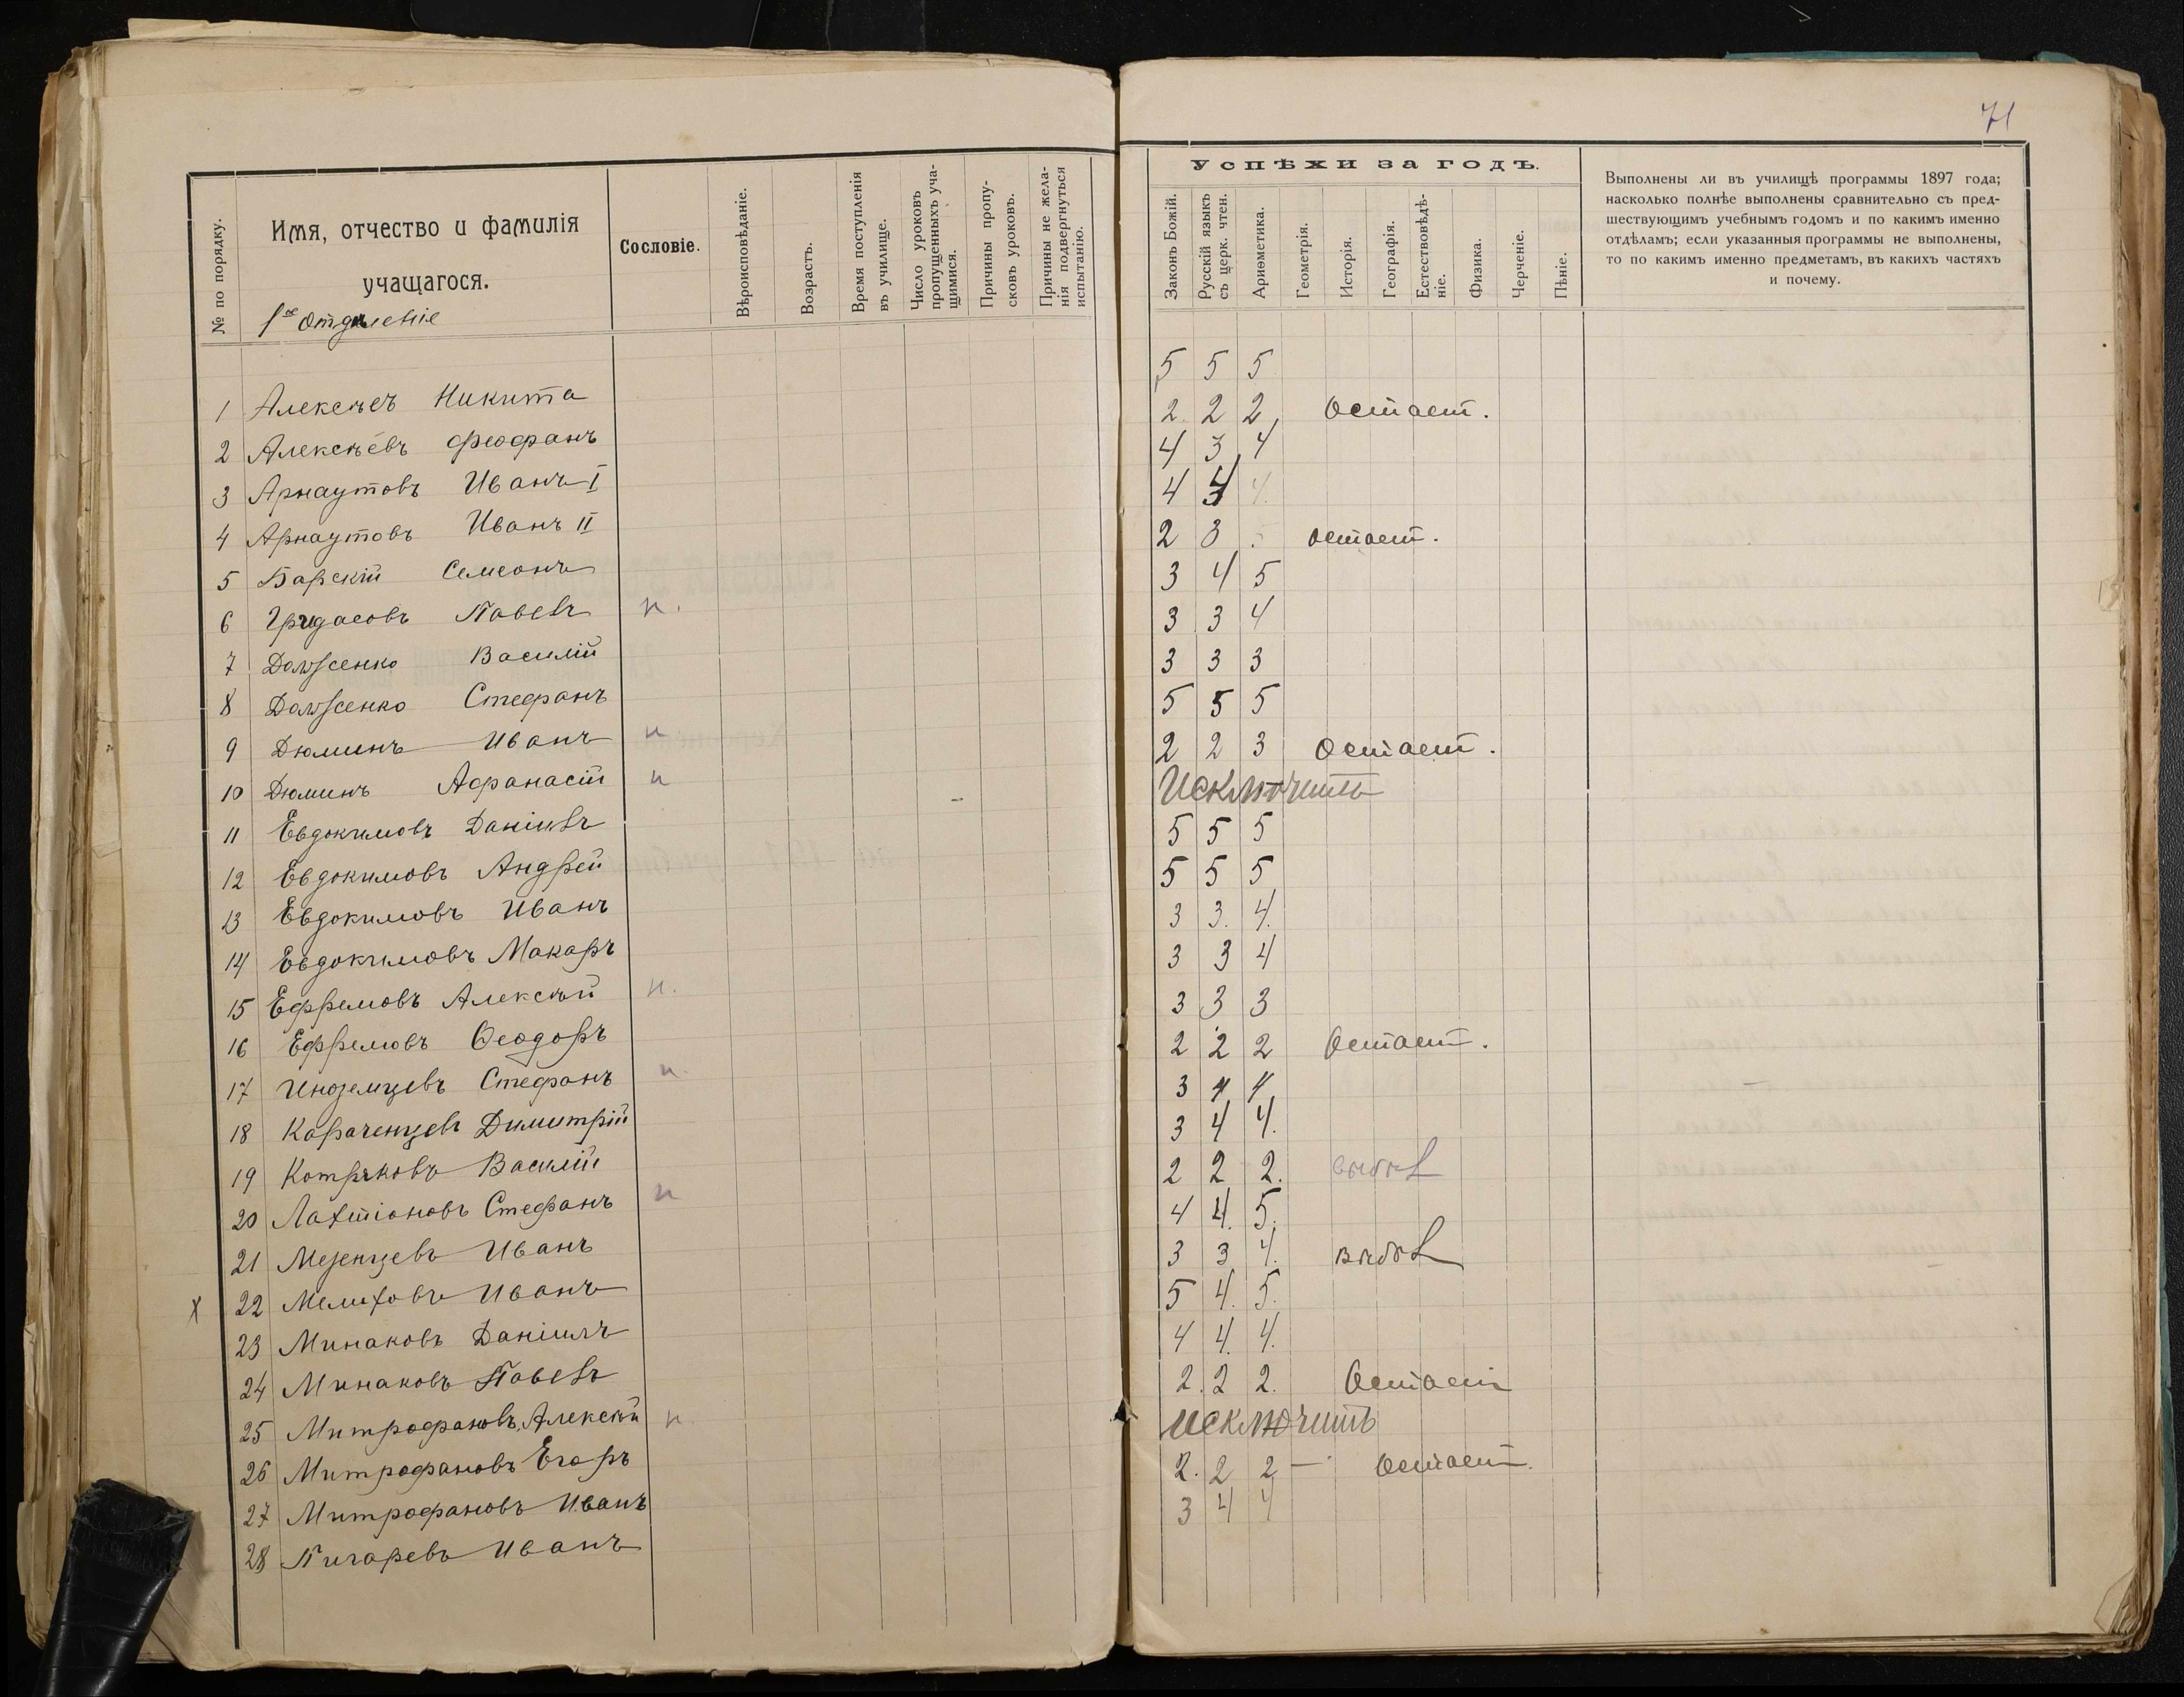 № по порядку.
Имя, отчество и фамилія
учащагося.
1ое Отдѣленіе
Сословіе.
Вѣроисповѣданіе.
Возрастъ.
Время поступленія
въ училище.
Число уроковъ
пропущенныхъ уча-
щимися.
Причины пропу-
сковъ уроковъ.
Причины не жела-
нія подвергнуться
испытанію.
1 Алексѣевъ Никита
2 Алексѣевъ Феофанъ
3 Арнаутовъ Иванъ I
4 Арнаутовъ Иванъ II
5 Барскій Семеонъ
6 Гридасовъ Павелъ н.
7 Долженко Василій
8 Долженко Стефанъ
9 Дюминъ Иванъ н
10 Дюминъ Афанасій н
11 Евдокимовъ Даніилъ
12 Евдокимовъ Андрей
13 Евдокимовъ Иванъ
14 Евдокимовъ Макаръ
15 Ефремовъ Алексѣй н.
16 Ефремовъ Ѳеодоръ
17 Иноземцевъ Стефанъ н.
18 Караченцевъ Димитрій
19 Котряковъ Василій
20 Лахтіоновъ Стефанъ н
21 Мезенцевъ Иванъ
х 22 Мелиховъ Иванъ
23 Минаковъ Даніилъ
24 Минаковъ Павелъ
25 Митрофановъ Алексѣй н
26 Митрофановъ Егоръ
27 Митрофановъ Иванъ
28 Пигаревъ Иванъ
71
Успѣхи за годъ.
Законъ Божій.
Русскій языкъ
съ церк. чтен.
Ариѳметика.
Геометрія.
Исторія.
Географія.
Естествовѣдѣ-
ніе.
Физика.
Черченіе.
Пѣніе.
Выполнены ли въ училищѣ программы 1897 года;
насколько полнѣе выполнены сравнительно съ пред-
шествующимъ учебнымъ годомъ и по какимъ именно
отдѣламъ; если указанныя программы не выполнены,
то по какимъ именно предметамъ, въ какихъ частяхъ
и почему.
5 5 5
2. 2 2 Остает.
4 3 4
4 4 4.
2 3 остает.
3 4 5
3 3 4
3 3 3
5 5 5
2 2 3 Остает.
Исключить
5 5 5
5 5 5
3 3. 4.
3 3 4
3 3 3
2 2 2 Остает.
3 4 4
3 4 4.
2 2 2. выбыл
4 4. 5.
3 3 4. выбыл
5 4. 5.
4 4. 4.
2. 2 2. Остает
исключить
2. 2 2 — Остает.
3 4 4